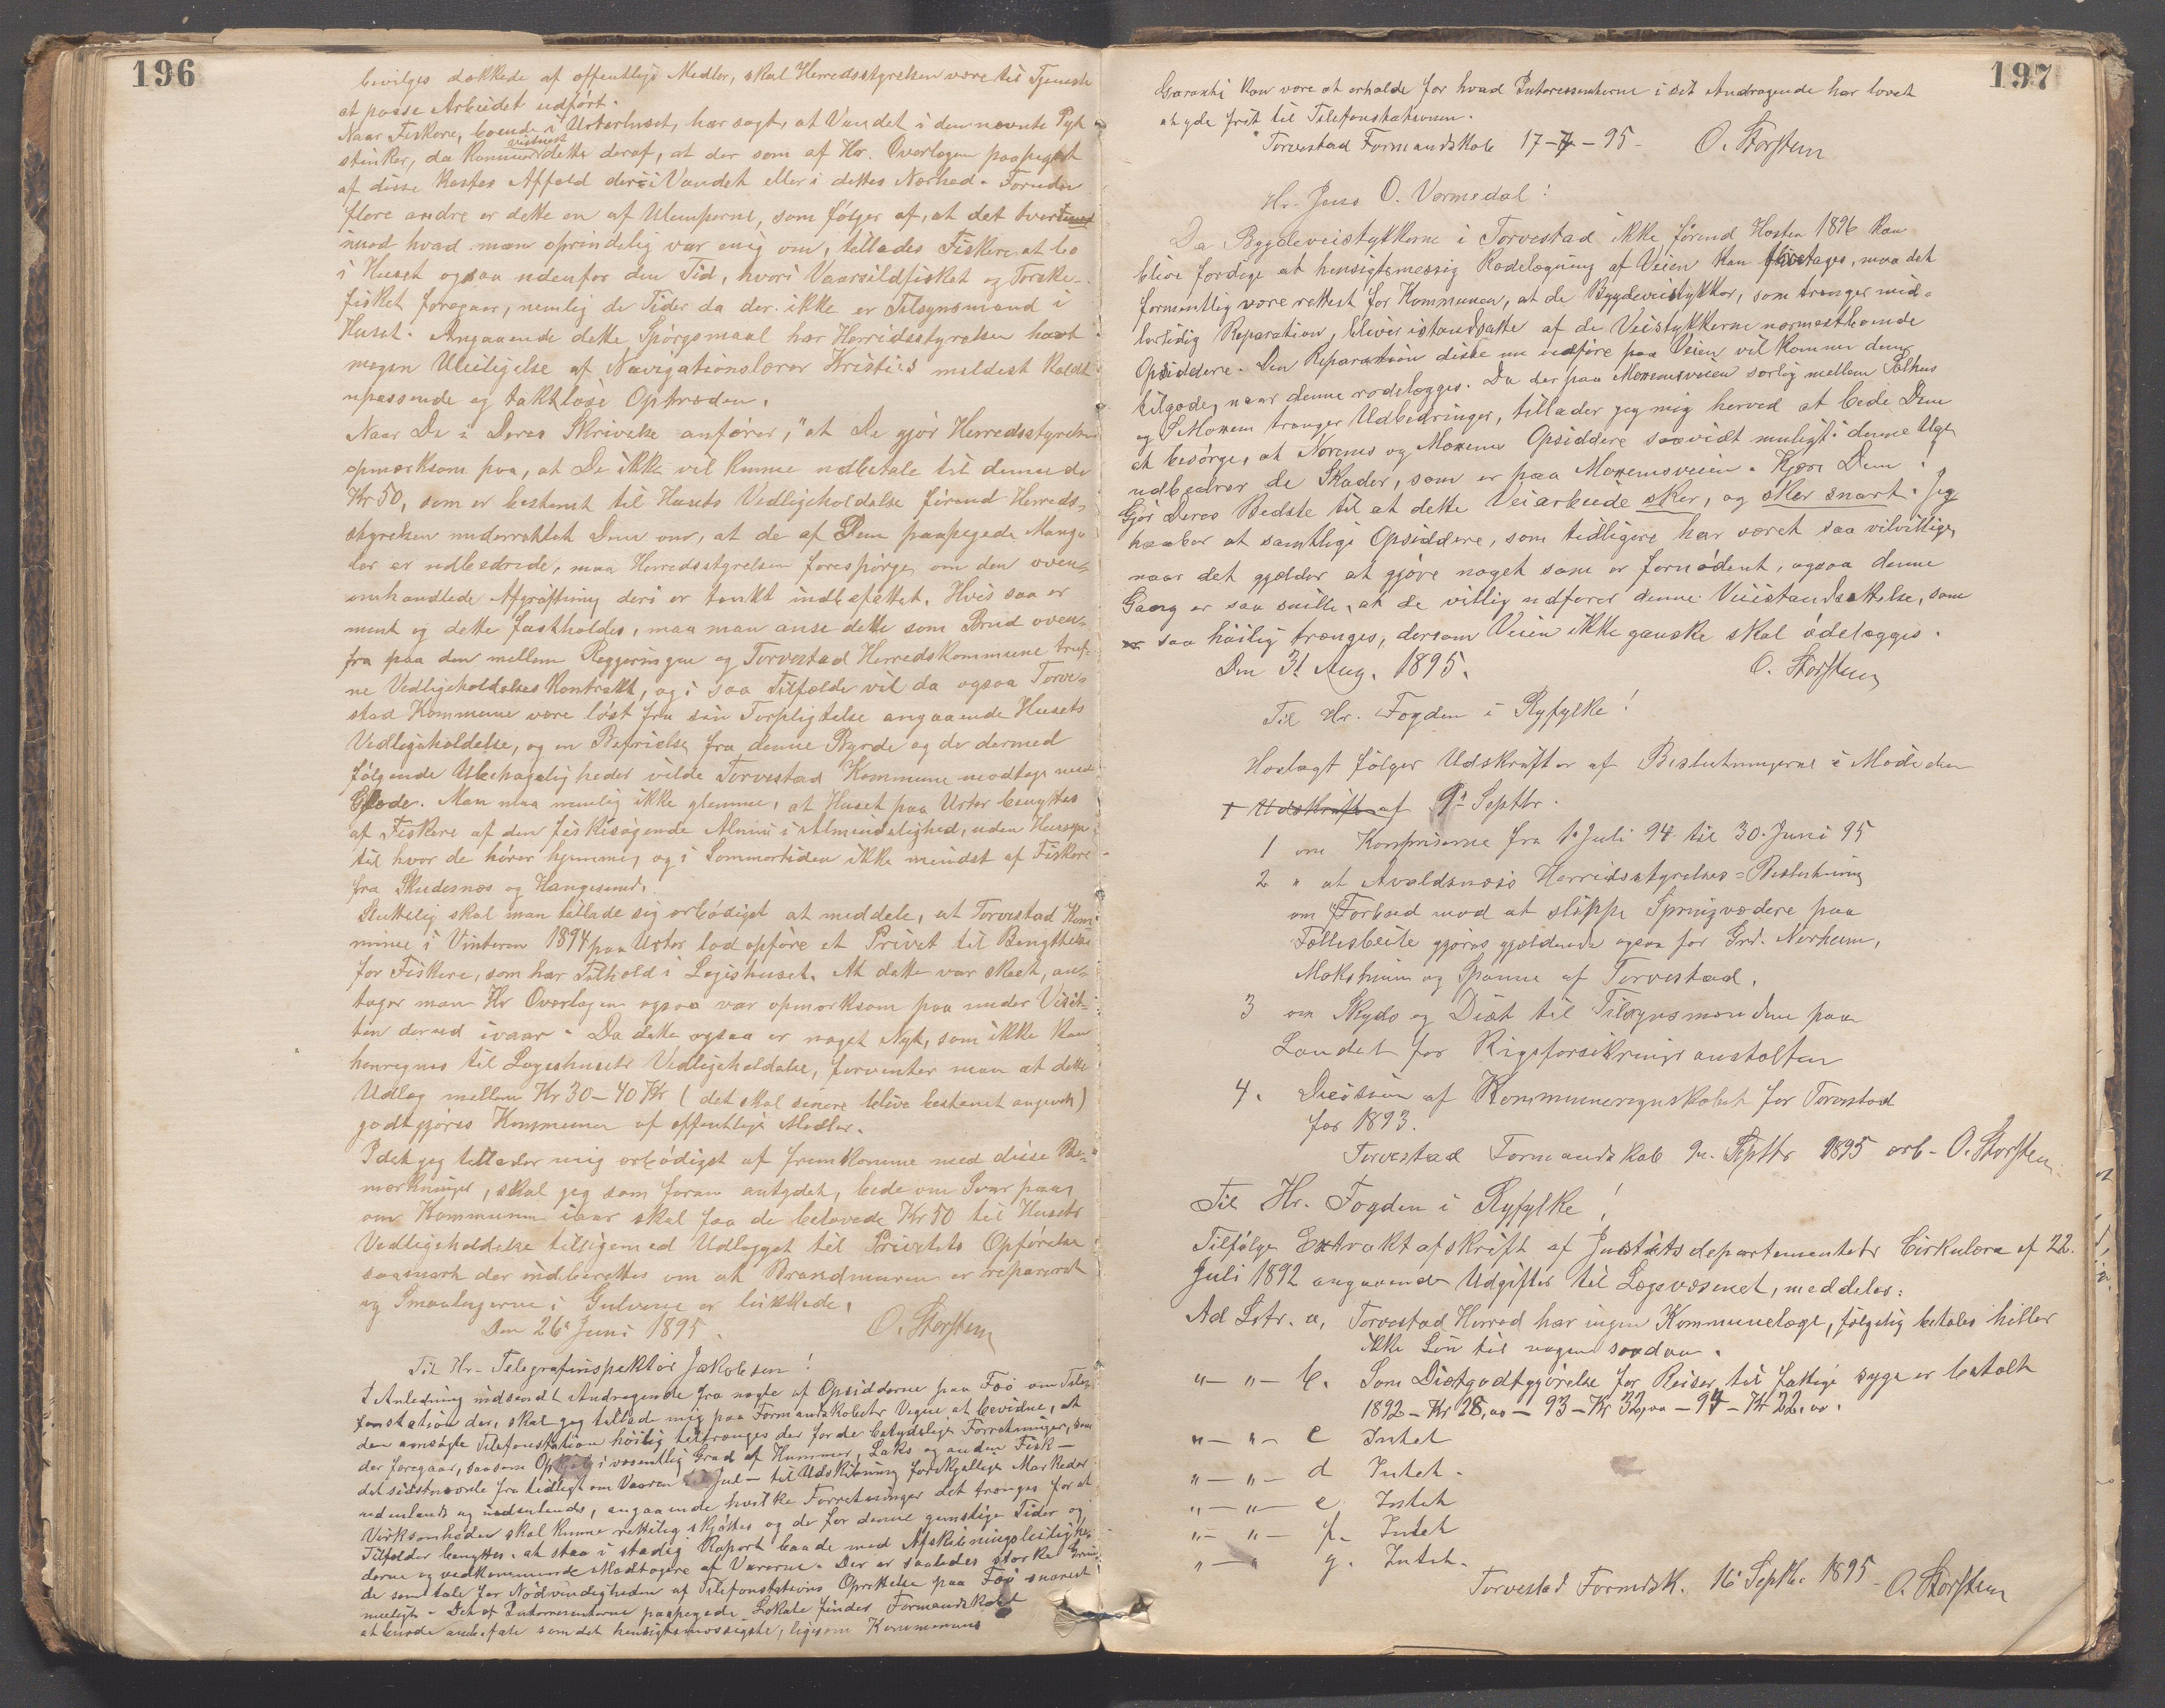 196
bevilges dækkede af offentlige Midler, skal Herredsstyrelsen være til Tjeneste
at passe Arbeidet udført.
Naar Fiskere, boende i Urterhuset, har sagt, at Vandet i den nævnte Pyt
stinker, da kommer vistnok dette deraf, at der som af Hr. Overlægen paapeget
af disse kastes Affald deri i Vandet eller i dettes Nærhed. Foruden
flere andre er dette en af Ulemperne, som følger af, at det tvert
imod hvad man oprindelig var enig om, tillades Fiskere at bo
i Huset ogsaa udenfor den Tid, hvori Vaarsildfisket og Torske-
fisket foregaar, nemlig de Tider da der ikke er Tilsynsmand i
Huset. Angaaende dette Spørgsmaal har Herredsstyrelsen havt
megen Uleiligelse af Navigationslærer Kristies mildest kaldt
upassende og taktløse Optræden.
Naar De i Deres Skrivelse anfører, "at De gjør Herredsstyrelsen
opmærksom paa, at De ikke vil kunne udbetale til denne de
Kr 50, som er bestemt til Husets Vedligeholdelse førend Herreds-
styrelsen underrettet Dem om, at de af Dem paapegede Mang-
ler er udbedrede, maa Herredsstyrelsen forespørge, om den oven-
omhandlede Afgrøftning deri er tænkt indbefattet. Hvis saa er
ment og dette fastholdes, maa man anse dette som Brud oven-
fra paa den mellem Reggeringen og Torvestad Herredskommune truf-
ne Vedligeholdelseskontrakt, og i saa Tilfælde vil da ogsaa Torve-
stad Kommune være løst fra sin Forpligtelse angaaende Husets
Vedligeholdelse, og en Befrielse fra denne Byrde og de dermed
følgende Ubehageligheder vilde Torvestad Kommune modtage med
Glæde. Man maa nemlig ikke glemme, at Huset paa Urter benyttes
af Fiskere af den fiskesøgende Almue i Almindelighed, uden Hensyn
til hvor de hører hjemme, og i Sommertiden ikke mindst af Fiskere
fra Skudesnes og Haugesund.
Sluttelig skal man tillade sig ærbødigst at meddele, at Torvestad Kom-
mune i Vinteren 1894 paa Urter lod opføre et Privet til Benyttelse
for Fiskere, som har Tilhold i Logishuset. At dette var skeet, an-
tager man Hr Overlægen ogsaa var opmærksom paa under Visit-
ten derud ivaar. Da dette ogsaa er noget Nyt, som ikke kan
henregnes til Logishusets Vedligeholdelse, forventer man at dette
Udlæg mellem Kr 30 – 40 Kr (det skal senere blive bestemt angivet)
godtgjøres Kommunen af offentlige Midler.
Idet jeg tillader mig ærbødigst at fremkomme med disse Be-
mærkninger, skal jeg som foran antydet, bede om Svar paa,
om Kommunen iaar skal faa de belovede Kr 50 til Husets
Vedligeholdelse tilligemed Udlægget til Privetets Opførelse
saasnart der indberettes om at Brandmuren er repareret
og Smaalugerne i Gulvene er lukkede.
Den 26 Juni 1895. O. Storsten
Til Hr. Telegrafinspektør Jakobsen!
I Anledning indsendt Andragende fra nogle af Opsidderne paa Feø om Tele-
fonstation der, skal jeg tillade mig paa Formandskabets Vegne at bevidne, at
den ansøgte Telefonstation høilig tiltrænges der for de betydelige Forretninger, som
der foregaar, saasom Opkjøb i væsentlig Grad af Hummer, Laks og anden Fisk –
det sidstnævnte fra tidligt om Vaaren til Jul – til Udskibning forskjellige Markeder
udenlands og indenlands, angaaende hvilke Forretninger det trænges for at
Virksomheden skal kunne rettelig skjøttes og de for denne gunstige Tider og
Tilfælder benyttes, at staa i stadig Raport baade med Afskibningsleilighe-
derne og vedkommende Modtagere af Varerne. Der er saaledes stærke Grun-
de som tale for Nødvendigheden af Telefonstations Oprettelse paa Feø snarest
muligt. Det af Interessenterne paapegede Lokale finder Formandskabet
at burde anbefale som det hensigtsmæssigste, ligesom Kommunens
197
Garanti kan være at erholde for hvad Interessenterne i sit Andragende har lovet
at yde frit til Telefonstationen.
Torvestad Formandskab 17 – 7 – 95 – O. Storsten
Hr. Jens O. Vormedal!
Da Bygdeveistykkerne i Torvestad ikke førend Høsten 1896 kan
blive færdige at hensigtsmessig Rodelægning af Veien kan foretages, maa det
formentlig være rettest for Kommunen, at de Bygdeveistykker, som trænger mid-
lertidig Reparation, bliver istandsatte af de Veistykkerne nærmestboende
Opsiddere. Den Reparation disse nu udføre paa Veien vil komme dem
tilgode, naar denne rodelægges. Da der paa Moxemsveien særlig mellem Salhus
og S Moxem trænger Udbedringer, tillader jeg mig herved at bede Dem
at besørge, at Norems og Moxems Opsiddere saavidt muligt i denne Uge
udbedrer de Skader, som er paa Moxemsveien. Kjære Dem!
Gjør Deres Bedste til at dette Veiarbeide sker, og sker snart. Jeg
haaber at samtlige Opsiddere, som tidligere har været saa velvillige,
naar det gjælder at gjøre noget som er fornødent, ogsaa denne
Gang er saa snille, at de villig udfører denne Veiistandsættelse, som
er saa høilig trænges, dersom Veien ikke ganske skal ødelægges.
Den 31 Aug. 1895. O. Storsten
Til Hr. Fogden i Ryfylke!
Hoslagt følger Udskrifter af Beslutningerne i Møde den
+ Udskrifter af 9de Septbr.
1 om Kornpriserne fra 1 Juli 94 til 30 Juni 95
2 " at Avaldsnæs Herredsstyrelses-Beslutning
om Forbud mod at slippe Springvædere paa
Fællesbeite gjøres gjældende ogsaa for Grd. Norheim,
Moksheim og Spanne af Torvestad.
3 om Skyds og Diæt til Tilsynsmændene paa
Landet for Rigsforsikringsanstalten
4. Decision af Kommuneregnskabet for Torvestad
for 1893.
Torvestad Formandskab 9. Septbr 1895 ærb. O. Storsten
Til Hr. Fogden i Ryfylke!
Tilfølge Extraktafskrift af Justitsdepartementets Cirkulære af 22.
Juli 1892 angaaende Udgifter til Lægevæsenet, meddeles:
Ad Litr. a, Torvestad Herred har ingen Kommunelæge, følgelig betales heller
ikke Løn til nogen saadan.
" – " – b. Som Diætgodtgjørelse for Reiser til fattige syge er betalt
1892 – Kr 28,00 – 93 – Kr 32,00 – 94 – Kr 22,00.
" – " – c Intet
" – " – d Intet.
" – " – e Intet
" – " – f. Intet
" – " g. Intet.
Torvestad Formdsk. 16 Septbr 1895 O. Storsten